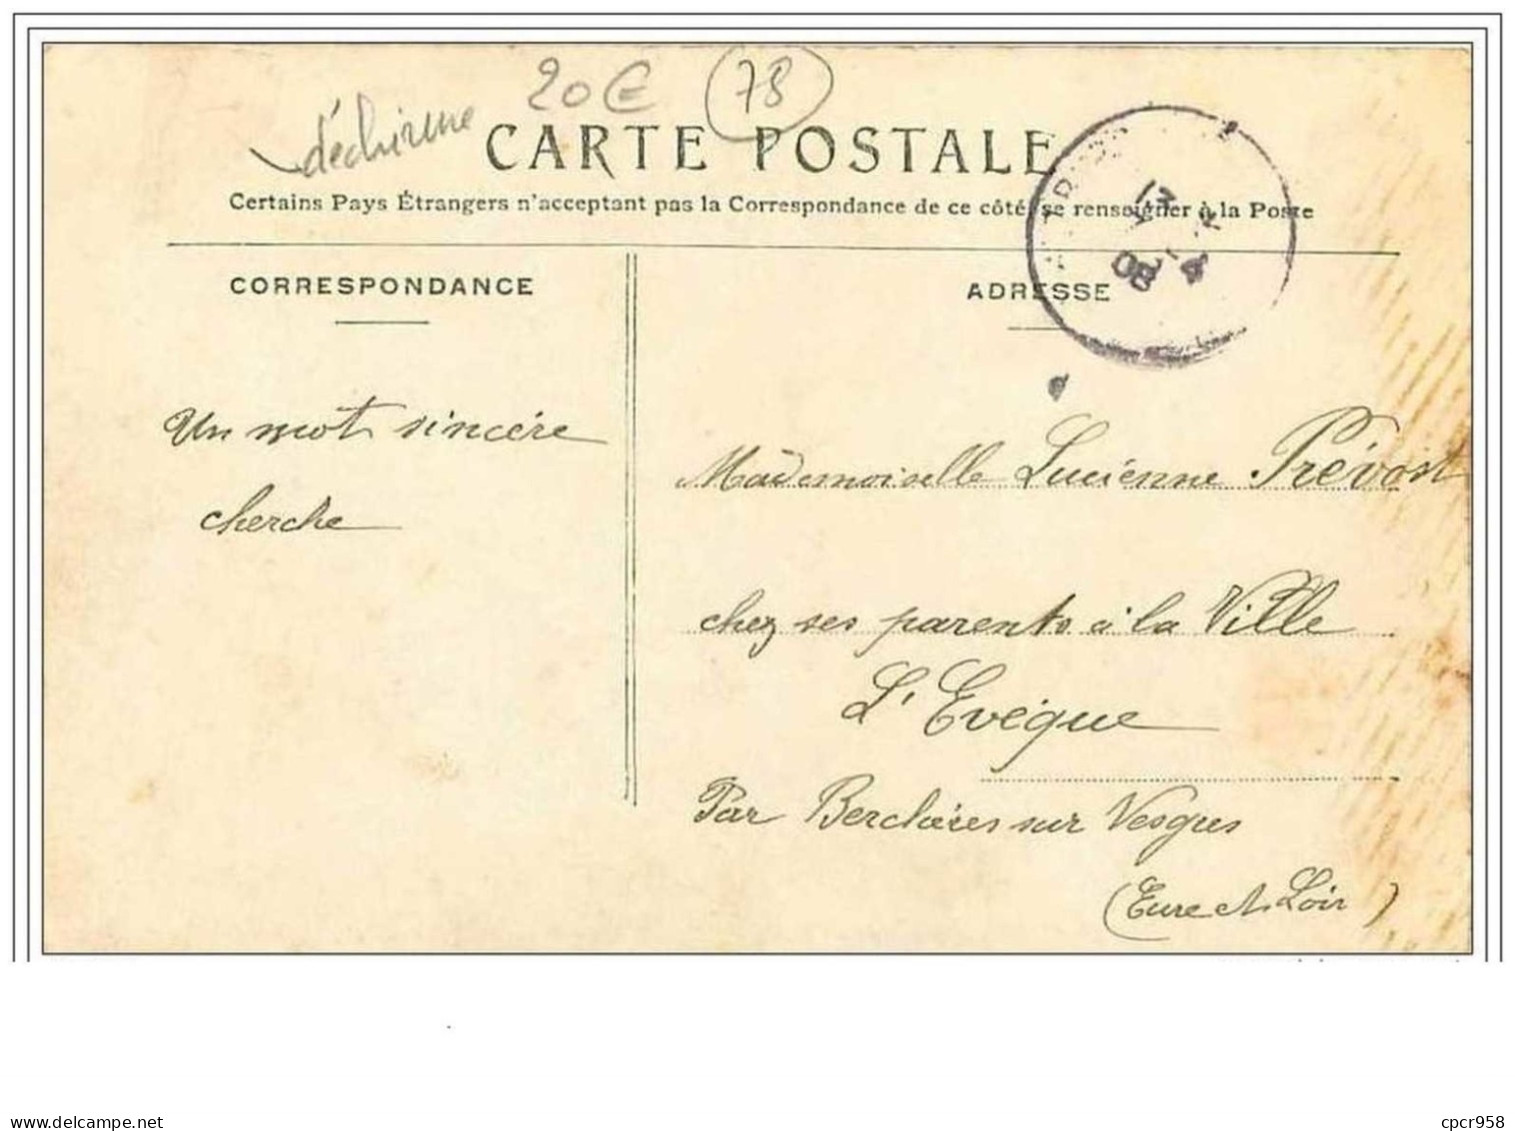 déchirure 20€ 78
CARTE POSTALE
Certains Pays Étrangers n'acceptent pas la Correspondance de ce côté, se renseigner à la Poste
CORRESPONDANCE
ADRESSE
08
Un mot sincère
cherche
Mademoiselle Lucienne Prévost
chez ses parents à la Ville
L'Evêque
Par Berchères sur Vesgres
(Eure et Loir)
www.delcampe.net
cpcr958